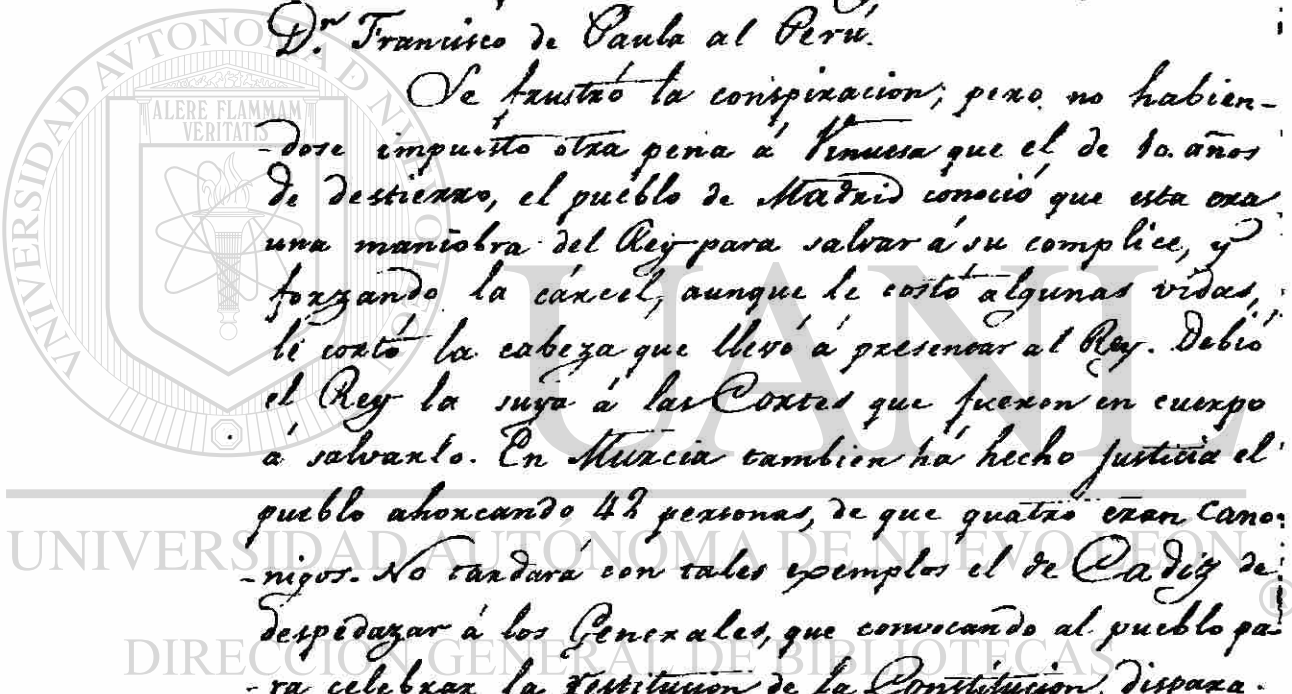 Dⁿ. Francisco de Paula al Perú.
Se frustró la conspiracion; pero no habien-
-dose impuesto otra pena á Vinuesa que el de 10. años
de destierro, el pueblo de Madrid conoció que esta era
una maniobra del Rey para salvar á su complice, y
forzando la cárcel, aunque le costó algunas vidas,
le cortó la cabeza que llevó á presentar al Rey. Debió
el Rey la suya á las Cortes que fueron en cuerpo
á salvarlo. En Murcia tambien há hecho justicia el
pueblo ahorcando 42 personas, de que quatro eran Cano-
-nigos. No tardará con tales exemplos el de Cadiz de
despedazar á los Generales, que convocando al pueblo pa-
-ra celebrar la restitucion de la Constitucion dispara-
UNIVERSIDAD AUTÓNOMA DE NUEVO LEÓN
ALERE FLAMMAM
VERITATIS
UANL
UNIVERSIDAD AUTÓNOMA DE NUEVO LEÓN
®
DIRECCIÓN GENERAL DE BIBLIOTECAS